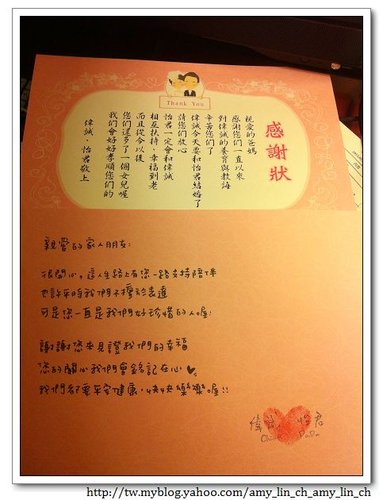 Thank You
感謝狀
親愛的爸媽
感謝您們一直以來
對偉誠的養育與教誨
辛苦您們了
偉誠今天要和怡君結婚了
請您們放心
怡君一定會和偉誠
相互扶持，幸福到老
而且從今以後
您們還多了一個女兒喔
我們會好好孝順您們的
偉誠、怡君敬上
親愛的家人朋友：
很開心，這人生路上有您一路支持陪伴
也許平時我們不擅於表達
可是您一直是我們好珍惜的人喔！
謝謝您來見證我們的幸福
您的關心我們會銘記在心
我們都要平安健康，快快樂樂喔!!
偉誠 怡君
http://tw.myblog.yahoo.com/amy_lin_ch_amy_lin_ch